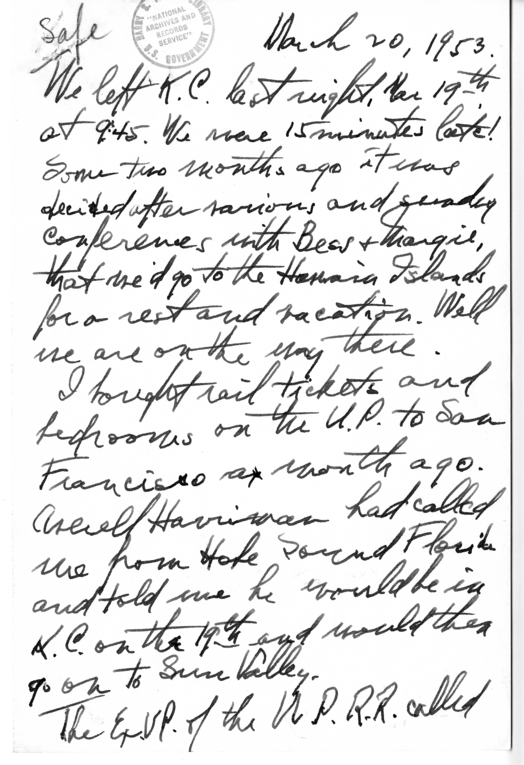 Safe
HARRY S. LIBRARY
"NATIONAL
ARCHIVES AND
RECORDS
SERVICE"
U.S. GOVERNMENT
March 20, 1953.
We left K.C. last night, Mar 19th
at 9:45. We were 15 minutes late!
Some two months ago it was
decided after various and sundry
conferences with Bess & Margie,
that we'd go to the Hawain Islands
for a rest and vacation. Well
we are on the way there.
I bought rail tickets and
bedrooms on the U.P. to San
Francisco a month ago.
Averell Harriman had called
me from Hobe Sound Florida
and told me he would be in
K.C. on the 19th and would then
go on to Sun Valley.
The Ex. V.P. of the U.P. R.R. called